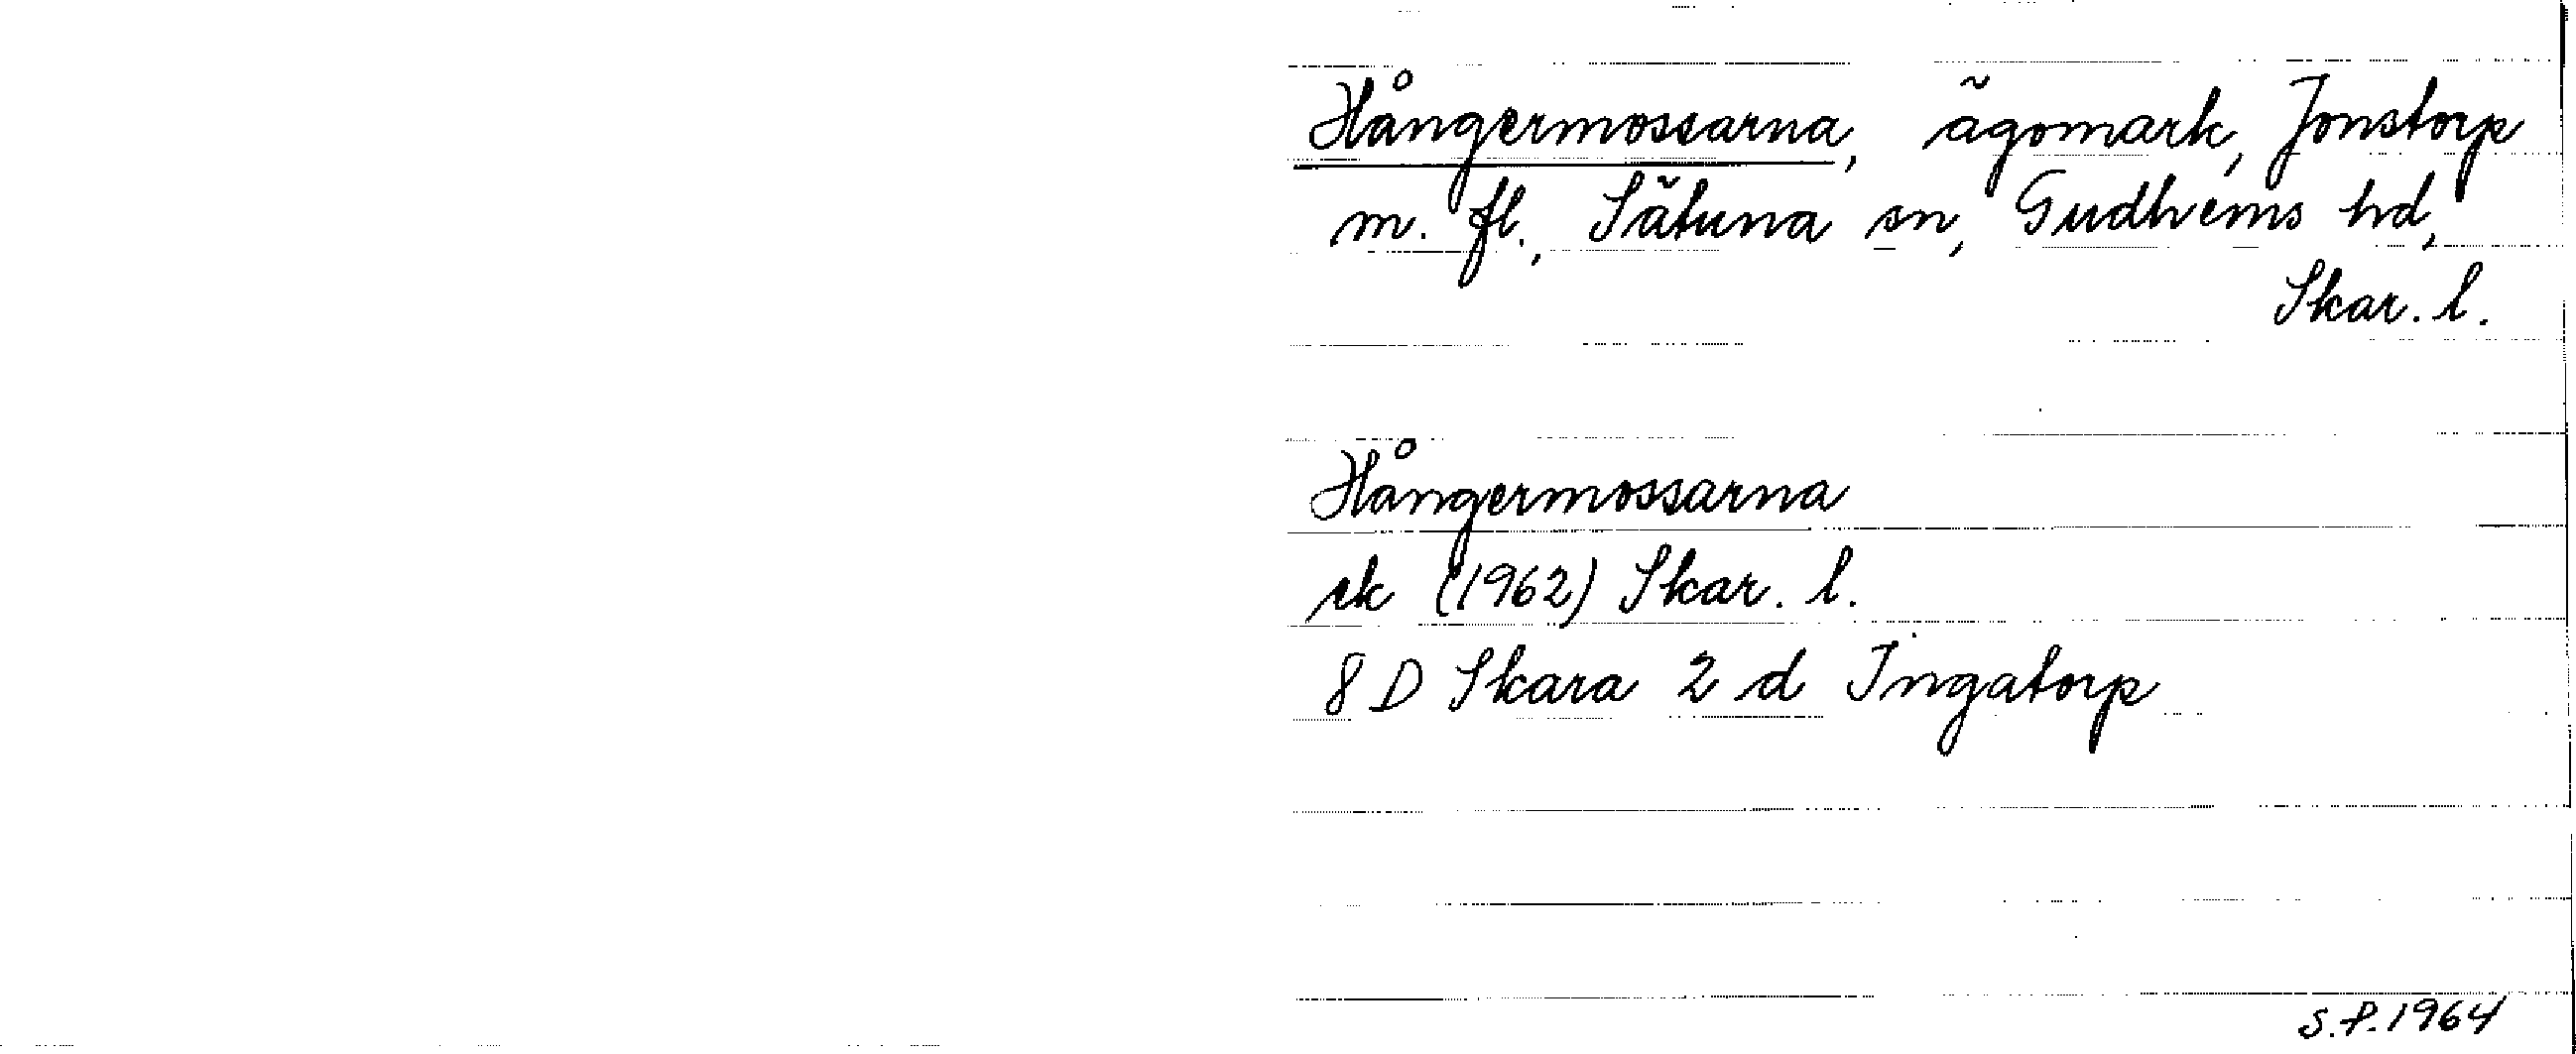 Hångermossarna, ägomark, Jonstorp
m. fl., Sätuna sn, Gudhems hd,
Skar. l.
Hångermossarna
ek (1962) Skar. l.
8 D Skara 2 d Ingatorp
S.P. 1964